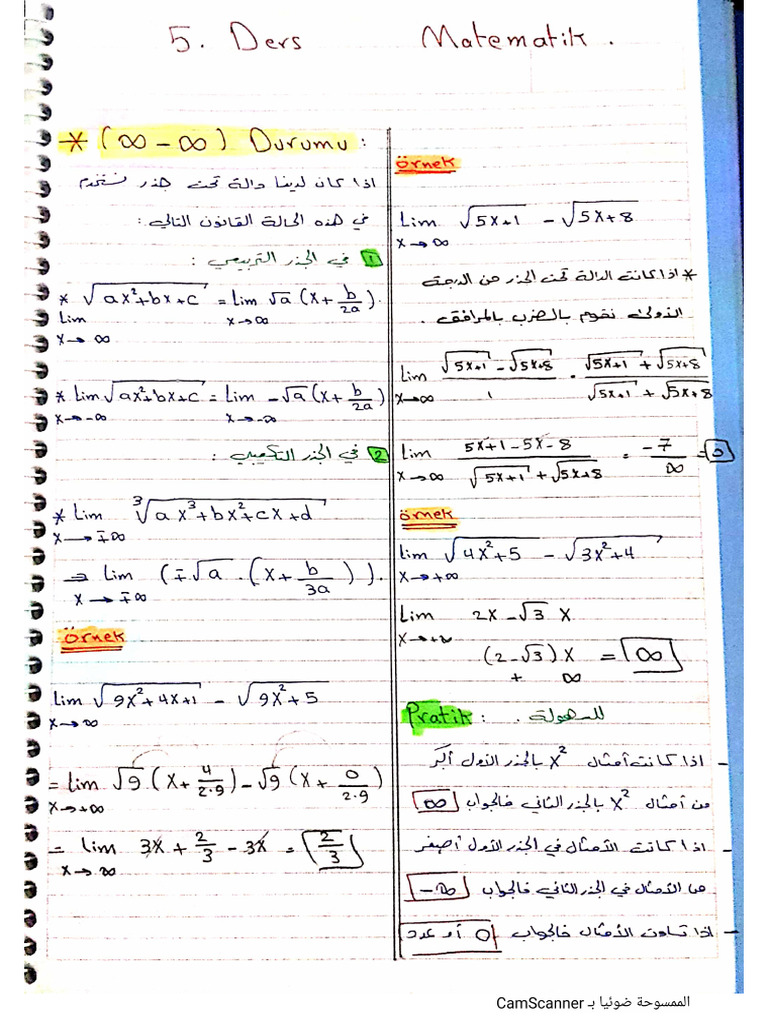 5. Ders Matematik.
* (∞ - ∞) Durumu :
اذا كان لدينا دالة تحت جذر نستخدم
في هذه الحالة القانون التالي :
1 في الجذر التربيعي :
* Lim x→∞ √(ax²+bx+c) = Lim x→∞ √a (x + b/2a).
* Lim x→-∞ √(ax²+bx+c) = Lim x→-∞ -√a (x + b/2a)
2 في الجذر التكعيبي :
* Lim x→∓∞ ³√(ax³+bx²+cx+d)
⇒ Lim x→∓∞ (∓√a · (x + b/3a)).
örnek
Lim x→∞ √(9x²+4x+1) - √(9x²+5)
= Lim x→+∞ √9 (x + 4/2·9) - √9 (x + 0/2·9)
= Lim x→∞ 3x + 2/3 - 3x = 2/3
örnek
Lim x→∞ √(5x+1) - √(5x+8)
* اذا كانت الدالة تحت الجذر من الدرجة
الأولى نقوم بالضرب بالمرافق .
Lim x→∞ (√(5x+1) - √(5x+8))/1 · (√(5x+1) + √(5x+8))/(√(5x+1) + √(5x+8))
Lim x→∞ (5x+1-5x-8)/(√(5x+1) + √(5x+8)) = -7/∞ = 0
örnek
Lim x→+∞ √(4x²+5) - √(3x²+4)
Lim x→+∞ 2x - √3 x
(2-√3) x = ∞
+ ∞
Pratik : للسهولة .
- اذا كانت أمثال x² بالجذر الأول أكبر
من أمثال x² بالجذر الثاني فالجواب ∞
- اذا كانت الأمثال في الجذر الأول أصغر
من الأمثال في الجذر الثاني فالجواب -∞
- اذا تساوت الأمثال فالجواب 0 أو عدد
الممسوحة ضوئيا بـ CamScanner